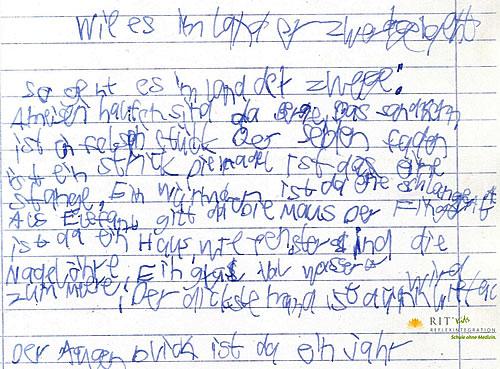 wie es im land er
so get es im land der zwege:
Ameisen haufen sind da das sandkorn
ist ein felsen stück Der seiden faden
ist ein strick die nadel ist das eine
stange, Ein ist da eine schlange
Als gilt da die Maus Der Fingerhut
ist da ein Haus, wie fenster sind die
Nadelöhre, Ein glas vol wasser wird
zum meere, Der dickste ist
Der Augen blick ist da ein jahr
RIT® kids
REFLEXINTEGRATION
Schule ohne Medizin.